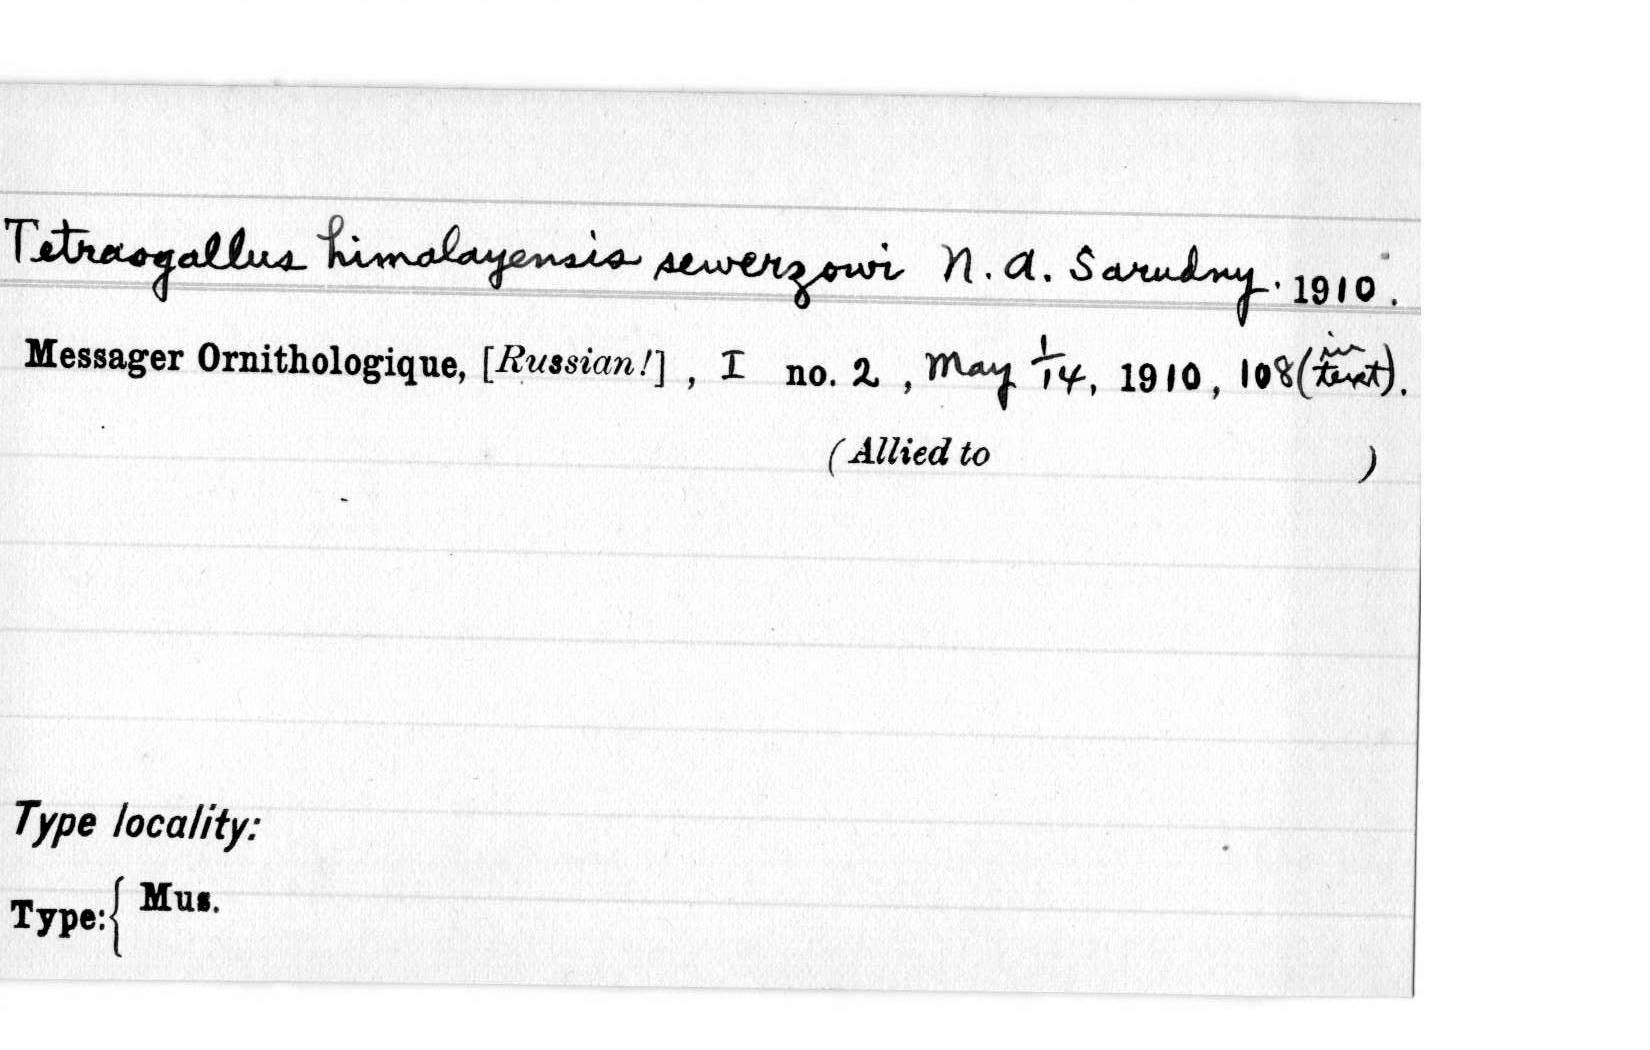 Tetraogallus himalayensis sewerzowi N. A. Sarudny. 1910.
Messager Ornithologique, [Russian!], I no. 2, May 1/14, 1910, 108 (in text).
(Allied to )
Type locality:
Type: { Mus.